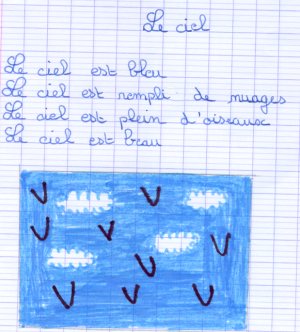 Le ciel
Le ciel est bleu
Le ciel est rempli de nuages
Le ciel est plein d'oiseaux
Le ciel est beau